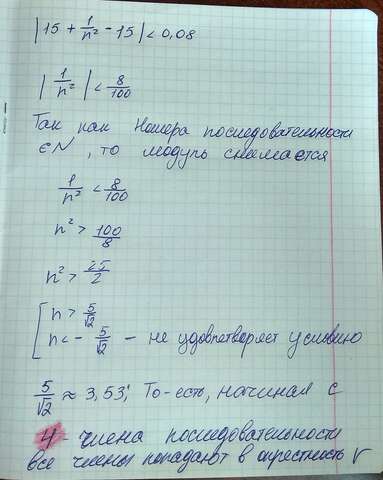 |15 + 1/n² - 15| < 0,08
|1/n²| < 8/100
Так как Номера последовательности
∈N, то модуль снимается
1/n² < 8/100
n² > 100/8
n² > 25/2
[ n > 5/√2
n < - 5/√2 - не удовлетворяет условию
5/√2 ≈ 3,53; То-есть, начиная с
4 - члена последовательности
все члены попадают в окрестность r